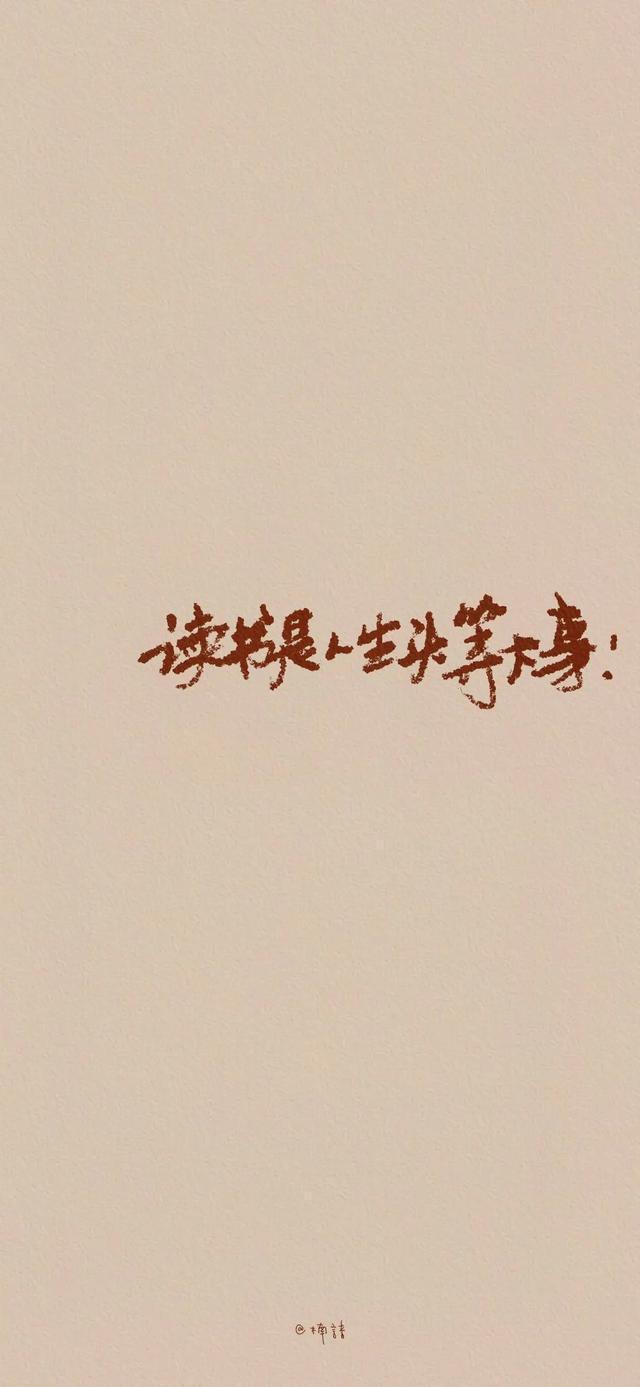 读书是人生头等大事!
@楠諸